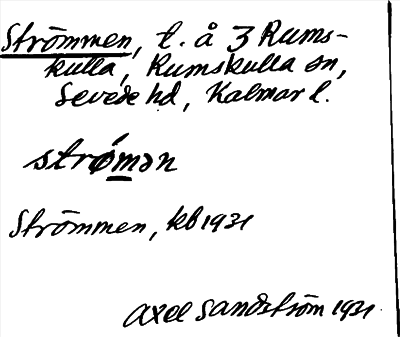 Strömmen, t. å 3 Rums-
kulla, Rumskulla sn,
Sevede hd, Kalmar l.
strǿmən
Strömmen, kb 1931
Axel Sandström 1931.